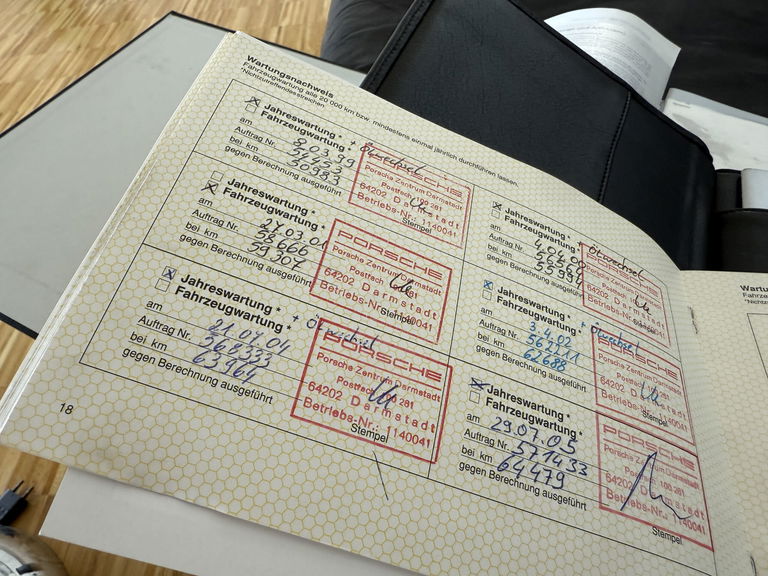 Wartungsnachweis
Fahrzeugwartung alle 20 000 km bzw. mindestens einmal jährlich durchführen lassen.
*Nichtzutreffendes streichen
Jahreswartung * + Ölwechsel
Fahrzeugwartung *
am 8.03.99
Auftrag Nr. 54453
bei km 50983
gegen Berechnung ausgeführt
PORSCHE
Porsche Zentrum Darmstadt
Postfach 100 261
64202 Darmstadt
Betriebs-Nr.: 1140041
Stempel
Jahreswartung * + Ölwechsel
Fahrzeugwartung *
am 4.04.00
Auftrag Nr.
bei km 55994
gegen Berechnung ausgeführt
PORSCHE
Porsche Zentrum Darmstadt
Postfach 100 261
64202 Darmstadt
Betriebs-Nr.: 1140041
Stempel
Jahreswartung *
Fahrzeugwartung *
am 27.03.01
Auftrag Nr. 58666
bei km 59307
gegen Berechnung ausgeführt
PORSCHE
Porsche Zentrum Darmstadt
Postfach 100 261
64202 Darmstadt
Betriebs-Nr.: 1140041
Stempel
Jahreswartung * + Ölwechsel
Fahrzeugwartung *
am 3.4.02
Auftrag Nr. 563211
bei km 62688
gegen Berechnung ausgeführt
PORSCHE
Porsche Zentrum Darmstadt
Postfach 100 261
64202 Darmstadt
Betriebs-Nr.: 1140041
Stempel
Jahreswartung * + Ölwechsel
Fahrzeugwartung *
am 21.07.04
Auftrag Nr. 568333
bei km 63964
gegen Berechnung ausgeführt
PORSCHE
Porsche Zentrum Darmstadt
Postfach 100 261
64202 Darmstadt
Betriebs-Nr.: 1140041
Stempel
Jahreswartung *
Fahrzeugwartung *
am 29.07.05
Auftrag Nr. 571433
bei km 64479
gegen Berechnung ausgeführt
PORSCHE
Porsche Zentrum Darmstadt
Postfach 100 261
64202 Darmstadt
Betriebs-Nr.: 1140041
Stempel
18